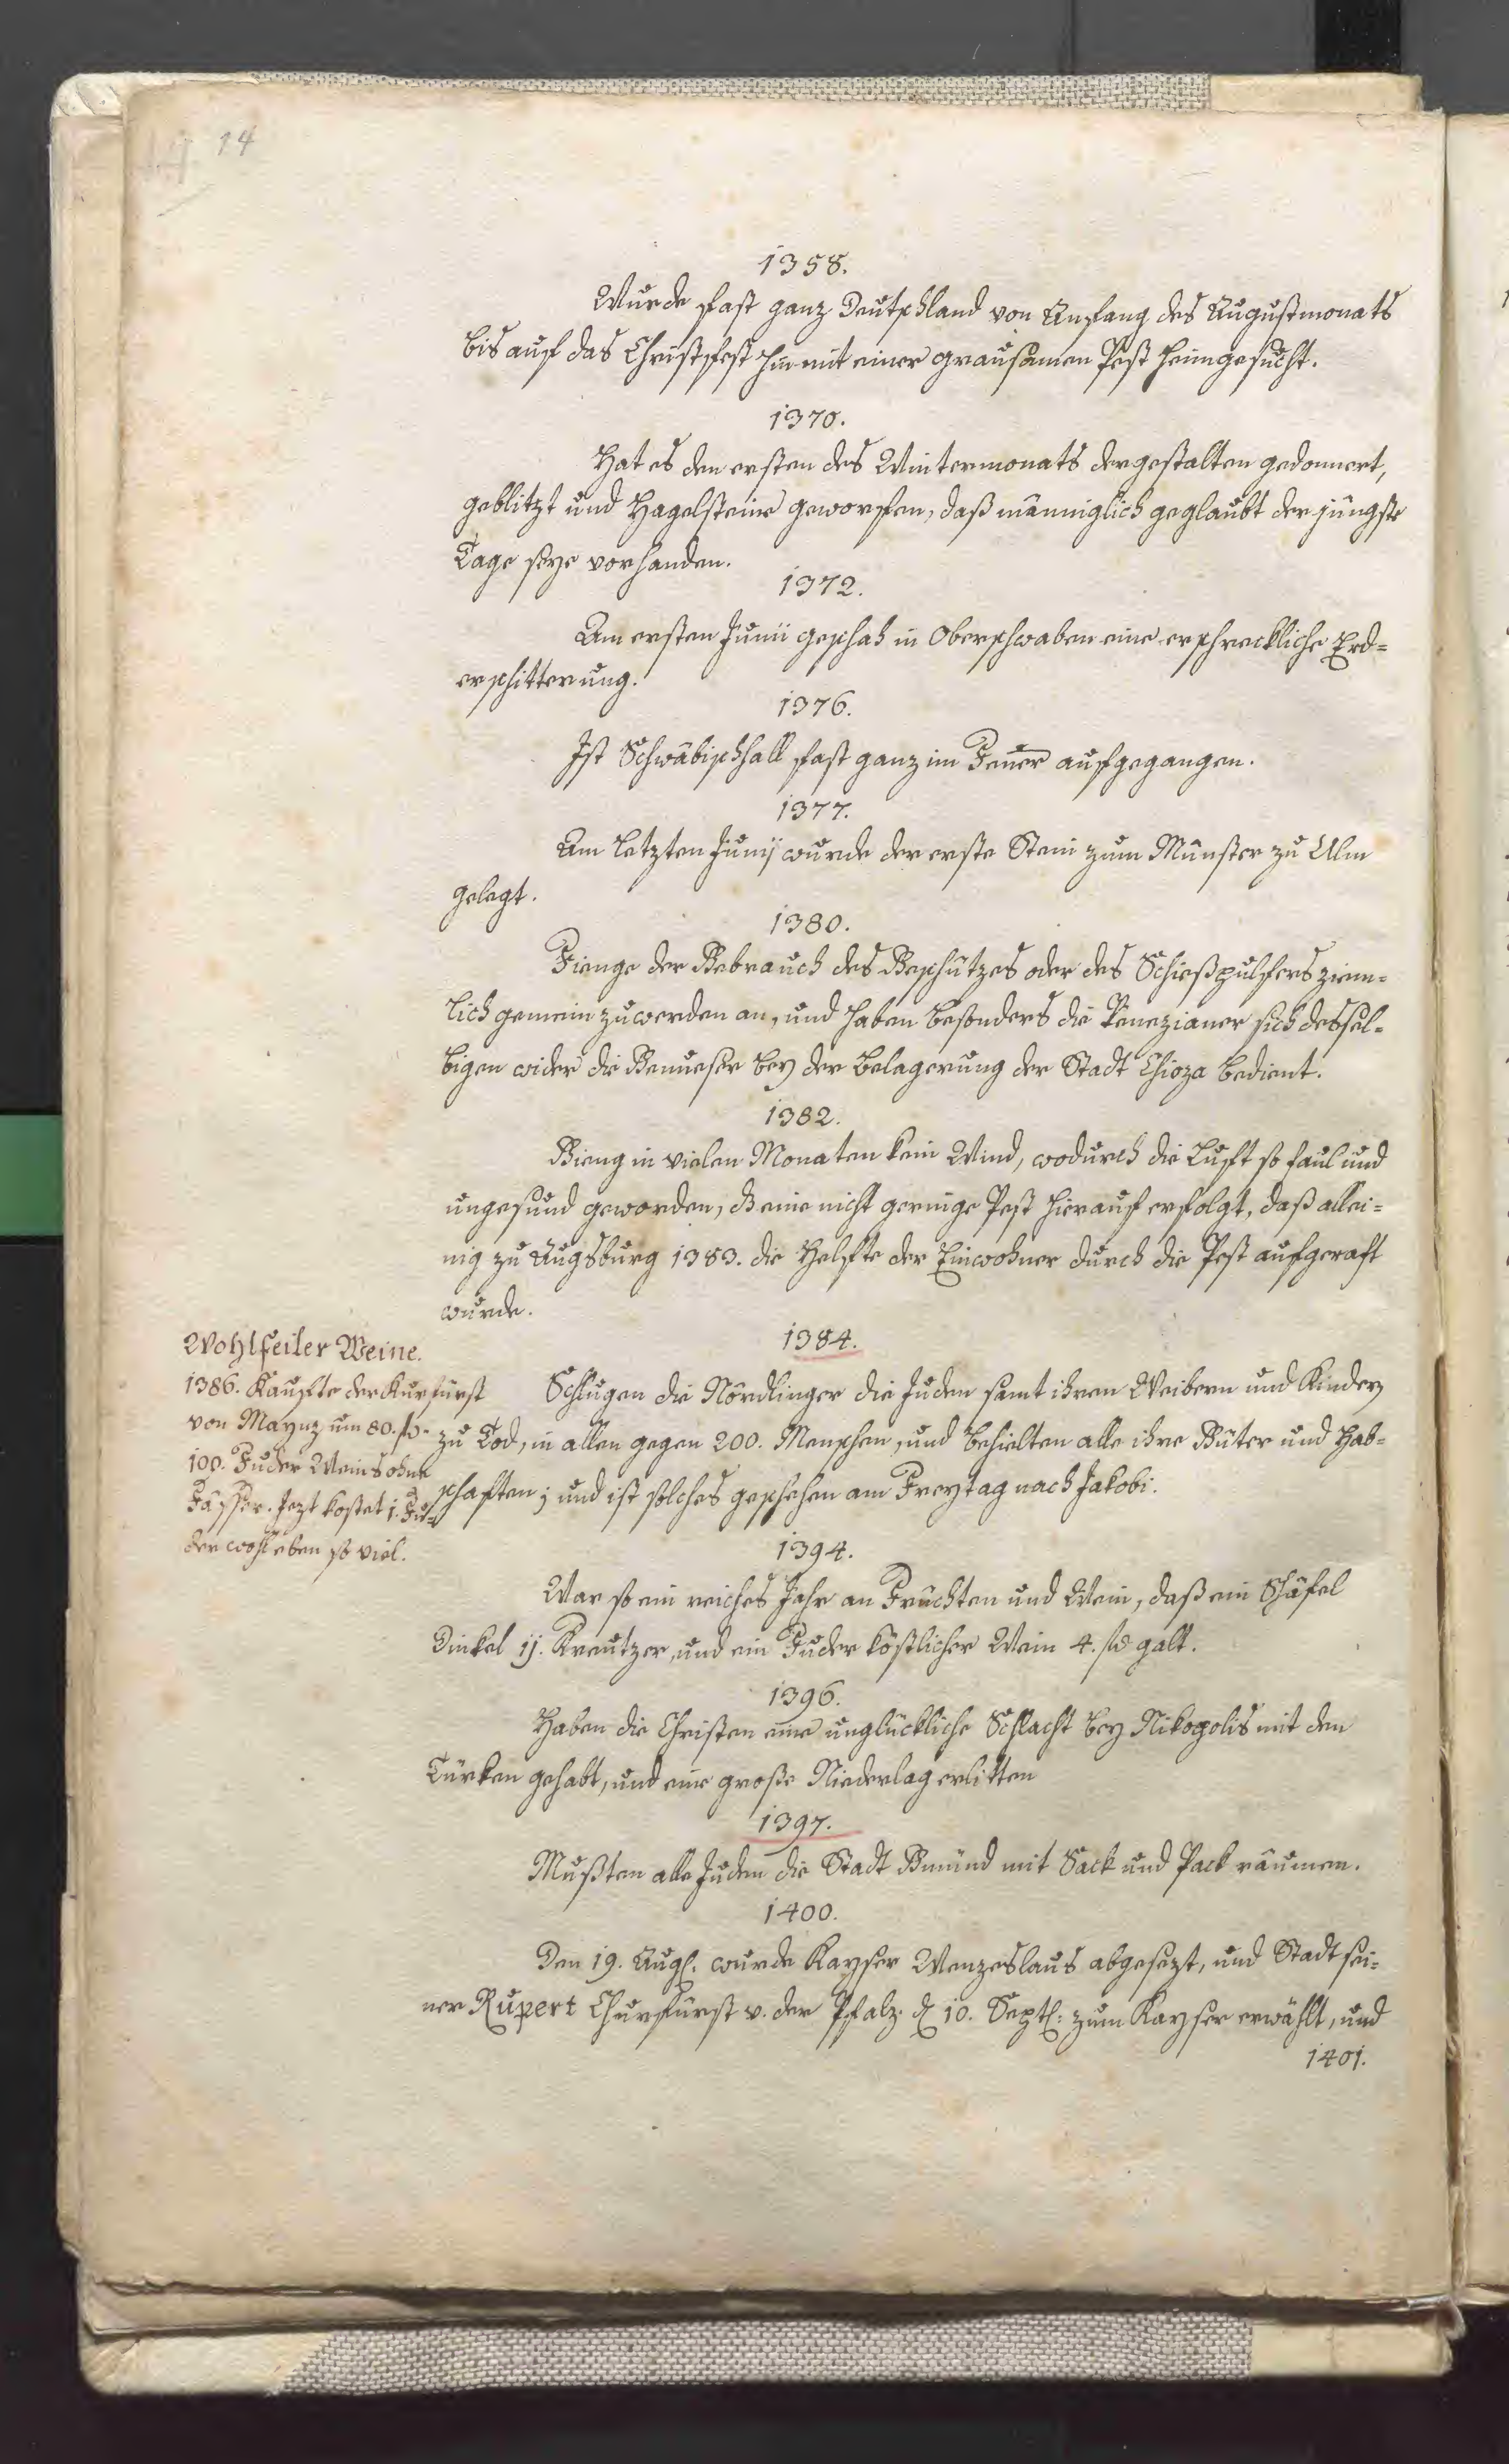 14
1358.
Wurde fast ganz Deutschland von Anfang des Augustmonats
bis auf das Christfest hin mit einer grausamen Pest heimgesucht.
1370.
Hat es den ersten des Wintermonats dergestalten gedonnert,
geblitzt und Hagelsteine geworfen, daß männiglich geglaubt der jüngste
Tage seye vorhanden.
1372.
Am ersten Junii geschah in Oberschwaben eine erschreckliche Erd-
erschitterung.
1376.
Ist Schwäbischhall fast ganz im Feuer aufgegangen.
1377.
Am letzten Junij wurde der erste Stein zum Münster zu Ulm
gelegt.
1380.
Fienge der Gebrauch des Geschützes oder des Schießpulfers ziem-
lich gemein zu werden an, und haben besonders die Venezianer sich dessel-
bigen wider die Genueser bey der Belagerung der Stadt Chioza bedient.
1382.
Gieng in vielen Monaten kein Wind, wodurch die Luft so faul und
ungesund geworden, dß eine nicht geringe Pest hierauf erfolgt, daß allei-
nig zu Augsburg 1383. die Helfte der Einwohner durch die Pest aufgeraft
wurde.
1384.
Schlugen die Nördlinger die Juden samt ihren Weibern und Kindern
zu Tod, in allen gegen 200. Menschen, und behielten alle ihre Güter und Hab-
schaften; und ist solches geschehen am Freytag nach Jakobi.
Wohlfeiler Weine.
1386. Kaufte der Kurfürst
von Maynz um 80. fl.
100. Fuder Weins ohne
Fässer. Jezt kostet 1. Fu-
der wohl eben so viel.
1394.
War so ein reiches Jahr an Früchten und Wein, daß ein Schäfel
Dinkel 11. Kreutzer, und ein Fuder köstlicher Wein 4. fl. galt.
1396.
Haben die Christen eine unglückliche Schlacht bey Nikopolis mit den
Türken gehabt, und eine große Niederlag erlitten
1397.
Mußten alle Juden die Stadt Gmünd mit Sack und Pack räumen.
1400.
Den 19. Aug. wurde Kayser Wenzeslaus abgesezt, und Stadt sei-
ner Rupert Churfürst v. der Pfalz d. 10. Sept: zum Kayser erwählt, und
1401.